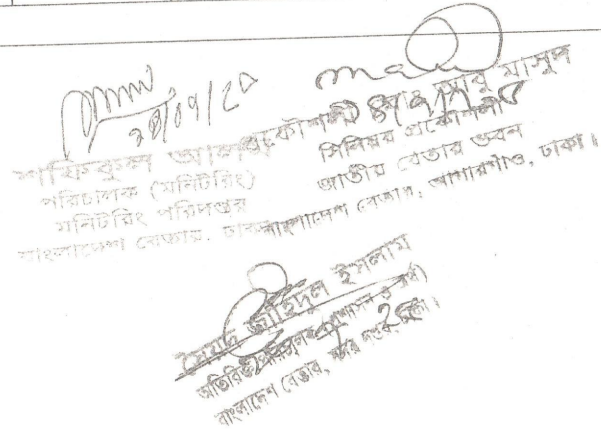 ২৪/০৭/২০
শফিকুল আলম
পরিচালক (মনিটরিং)
মনিটরিং পরিদপ্তর
বাংলাদেশ বেতার, ঢাকা
প্রকৌশলী মোঃ আবু মাসুদ
সিনিয়র প্রকৌশলী
জাতীয় বেতার ভবন
বাংলাদেশ বেতার, আগারগাঁও, ঢাকা।
সৈয়দ জাহিদুল ইসলাম
অতিরিক্ত পরিচালক (প্রশাসন ও অর্থ)
বাংলাদেশ বেতার, সদর দপ্তর, ঢাকা।